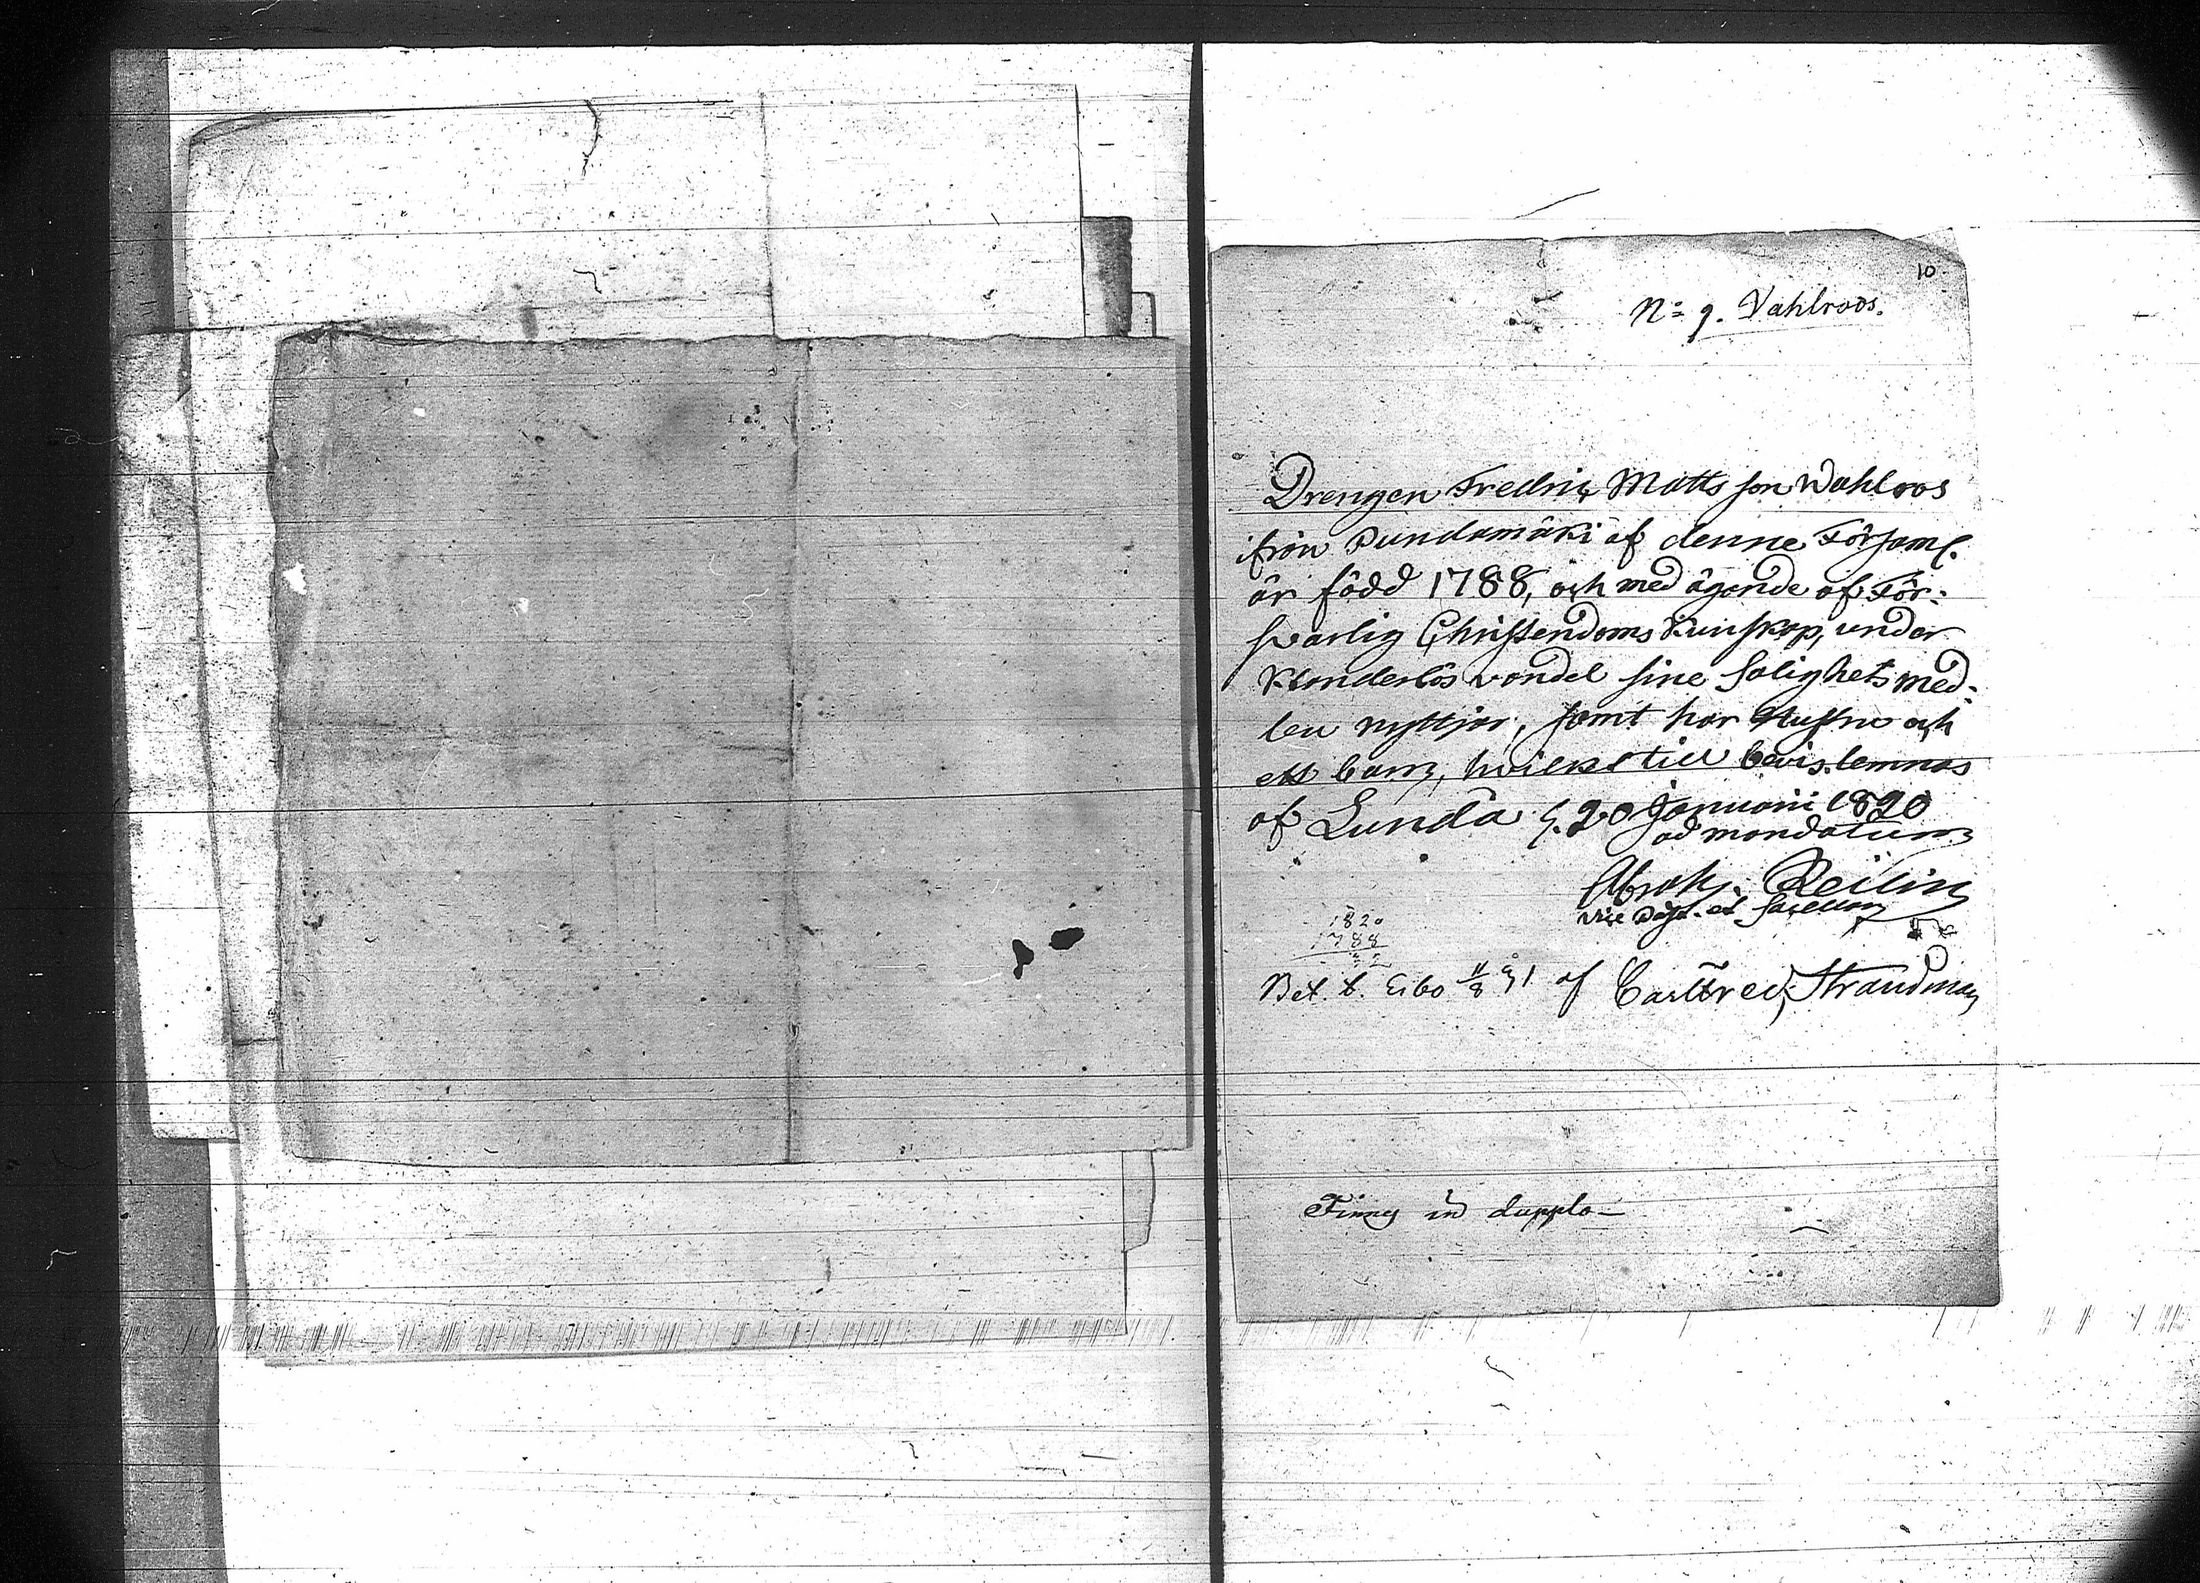 10
N:o 9. Vahlroos.
Drengen Fredric Matts son Wahlroos
ifrån Pundamäki af denne Församl.
är född 1788, och med ägande af För-
svarlig Christendoms Kunskap, under
Klanderlös vandel sine Salighets med-
len nyttjar, samt har Hustru och
ett barn, hvilket till bevis lemnas
af Lunda d. 20 Januarii 1820
ad mandatum
Abrah. Reilin
vice Past. et Sacellan
1820
1788
32
Bet. t. Eibo 11/8 91 af Carl Fred. Strandman
Finns in duplo